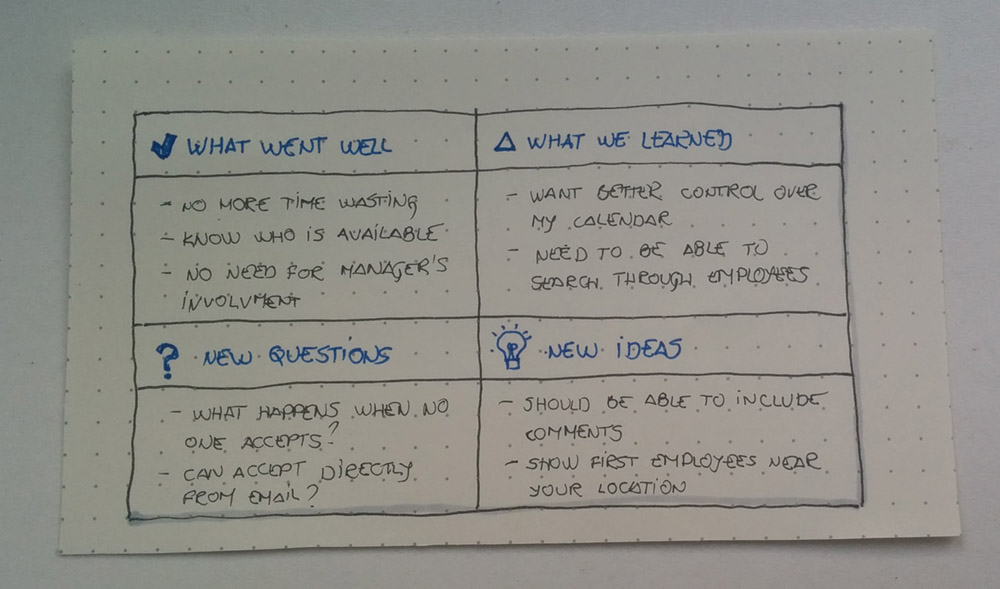 WHAT WENT WELL
- NO MORE TIME WASTING
- KNOW WHO IS AVAILABLE
- NO NEED FOR MANAGER'S
INVOLVMENT
WHAT WE LEARNED
- WANT BETTER CONTROL OVER
MY CALENDAR
- NEED TO BE ABLE TO
SEARCH THROUGH EMPLOYEES
? NEW QUESTIONS
- WHAT HAPPENS WHEN NO
ONE ACCEPTS?
- CAN ACCEPT DIRECTLY
FROM EMAIL?
NEW IDEAS
- SHOULD BE ABLE TO INCLUDE
COMMENTS
- SHOW FIRST EMPLOYEES NEAR
YOUR LOCATION